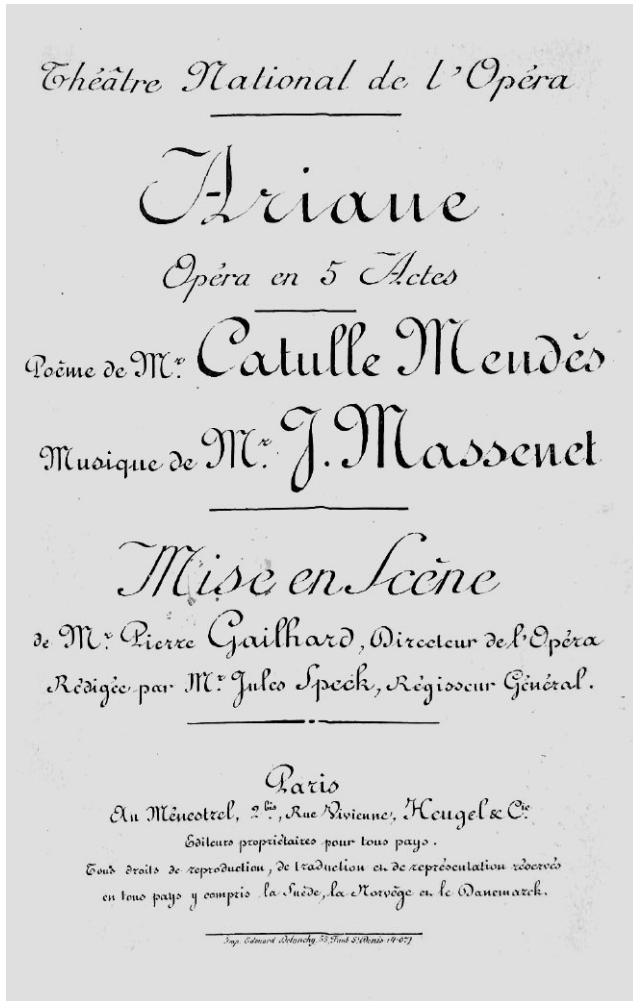 Théâtre National de l'Opéra
Ariane
Opéra en 5 Actes
Poème de Mr. Catulle Mendès
Musique de Mr. J. Massenet
Mise en Scène
de Mr. Pierre Gailhard, Directeur de l'Opéra
Rédigée par Mr. Jules Speck, Régisseur Général.
Paris
Au Ménestrel, 2bis, Rue Vivienne, Heugel & Cie.
Editeurs propriétaires pour tous pays.
Tous droits de reproduction, de traduction et de représentation réservés
en tous pays y compris la Suède, la Norvège et le Danemarck.
Imp. Edouard Delanchy, 55, Faub St Denis